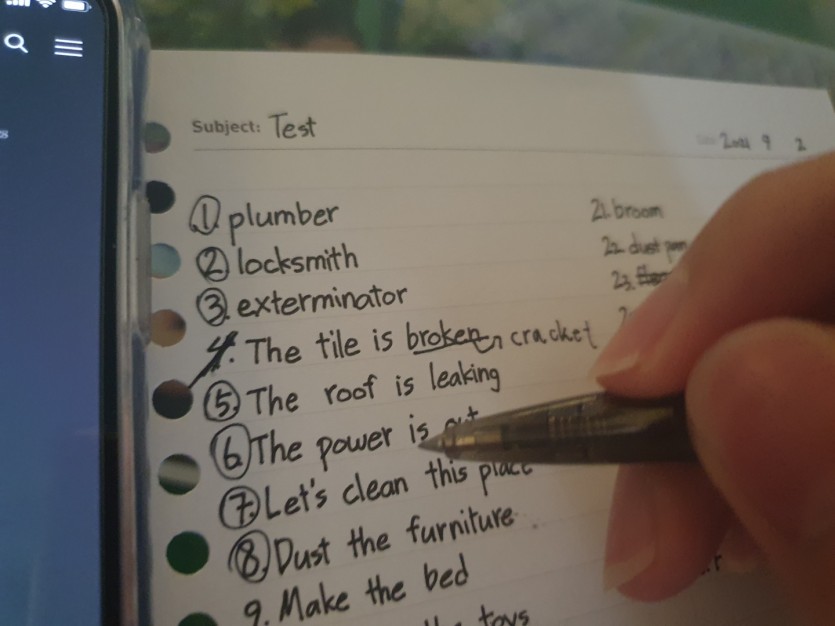 Subject: Test
2021 9 2
① plumber
② locksmith
③ exterminator
4. The tile is broken cracket
⑤ The roof is leaking
⑥ The power is out
⑦ Let's clean this place
⑧ Dust the furniture
9. Make the bed
the toys
21. broom
22. dust pan
23.